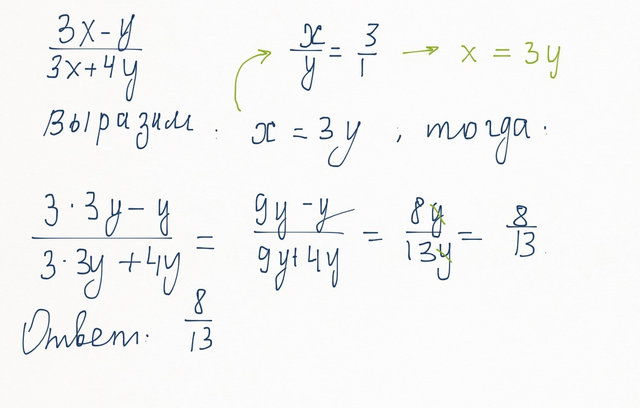 (3x-y)/(3x+4y) x/y = 3/1 → x = 3y
Выразим. x = 3y, тогда.
(3·3y-y)/(3·3y+4y) = (9y-y)/(9y+4y) = 8y/13y = 8/13
Ответ. 8/13